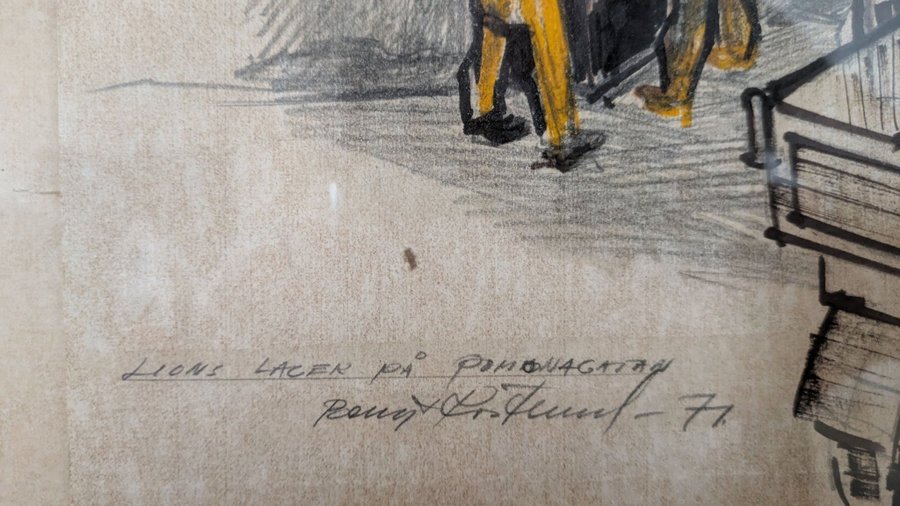 LIONS LAGER PÅ POMONAGATAN
Bengt - 71.